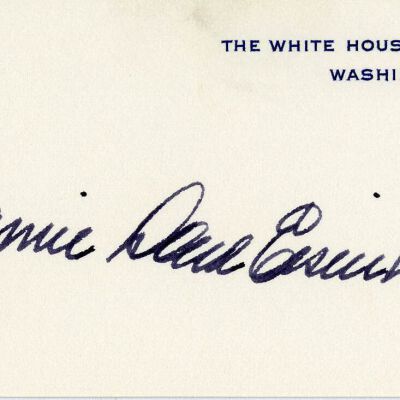 THE WHITE HOUS
WASHI
mie Doud Eisen